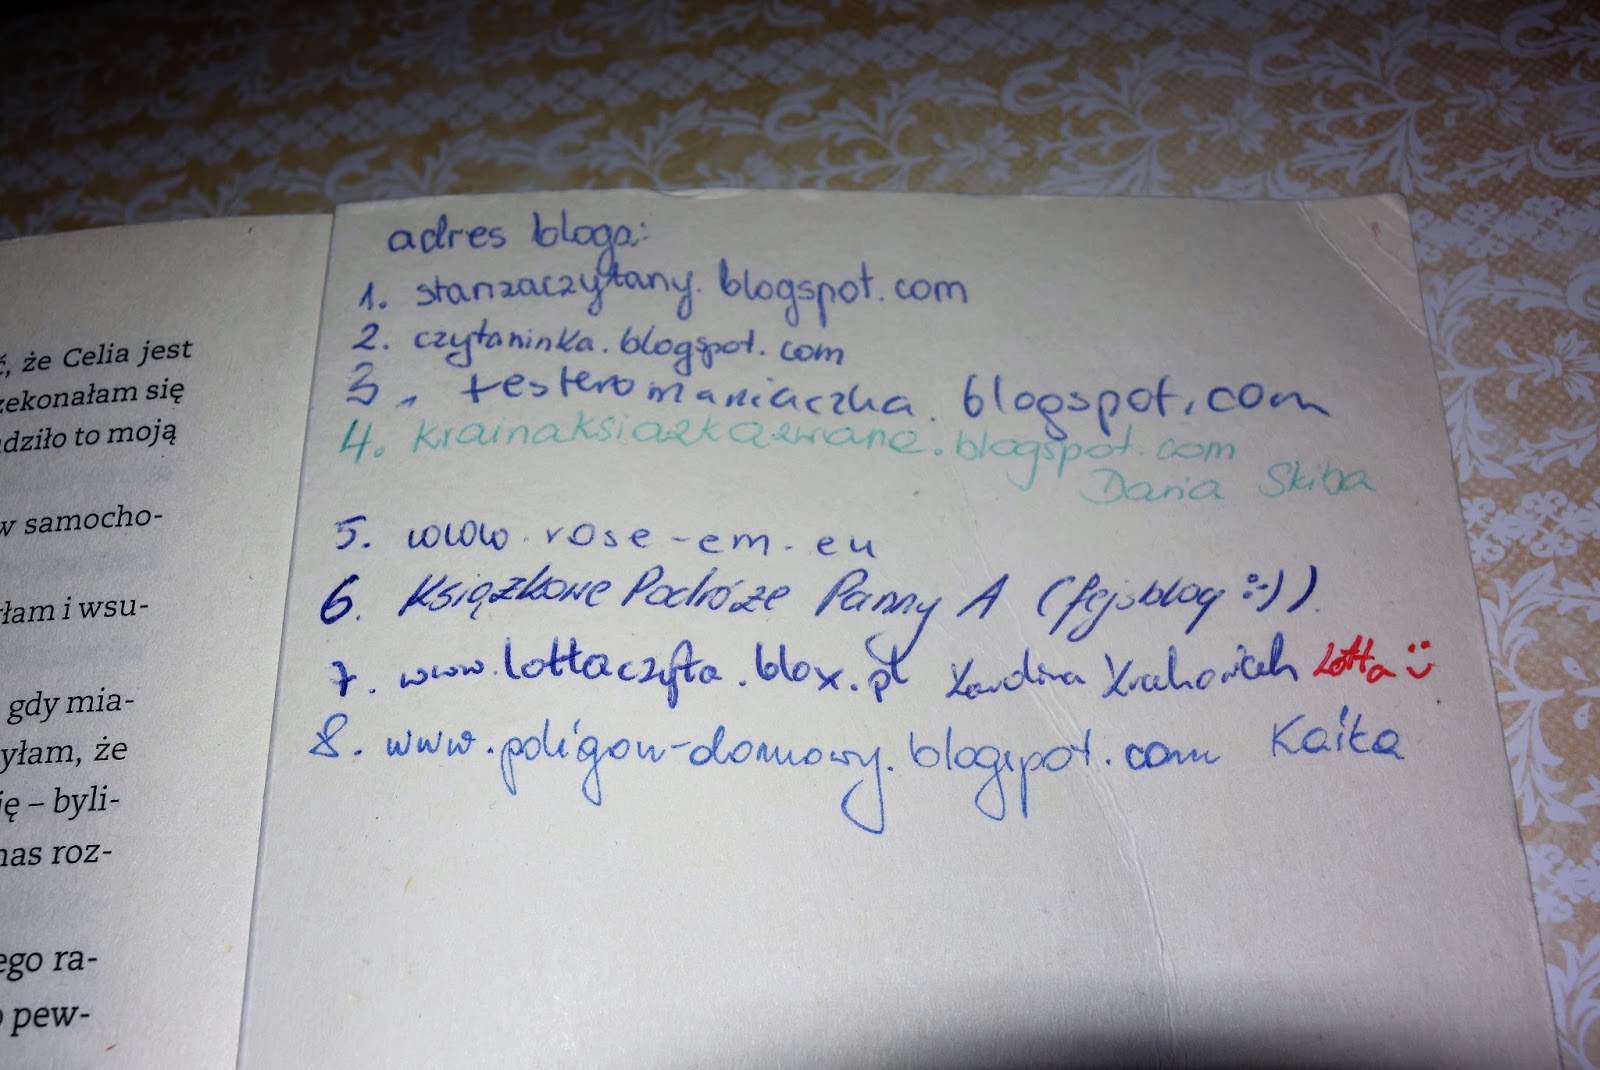 ć, że Celia jest
zekonałam się
dziło to moją
w samocho-
łam i wsu-
gdy mia-
yłam, że
ię – byli-
nas roz-
ego ra-
o pew-
adres bloga:
1. stanzaczytany.blogspot.com
2. czytaninka.blogspot.com
3. testeromaniaczka.blogspot.com
4. krainaksiazkazwana.blogspot.com
Daria Skiba
5. www.rose-em.eu
6. Książkowe Podróże Panny A (fejsblog :-)).
7. www.lottaczyta.blox.pl Lotta
8. www.poligon-domowy.blogspot.com Kaśka